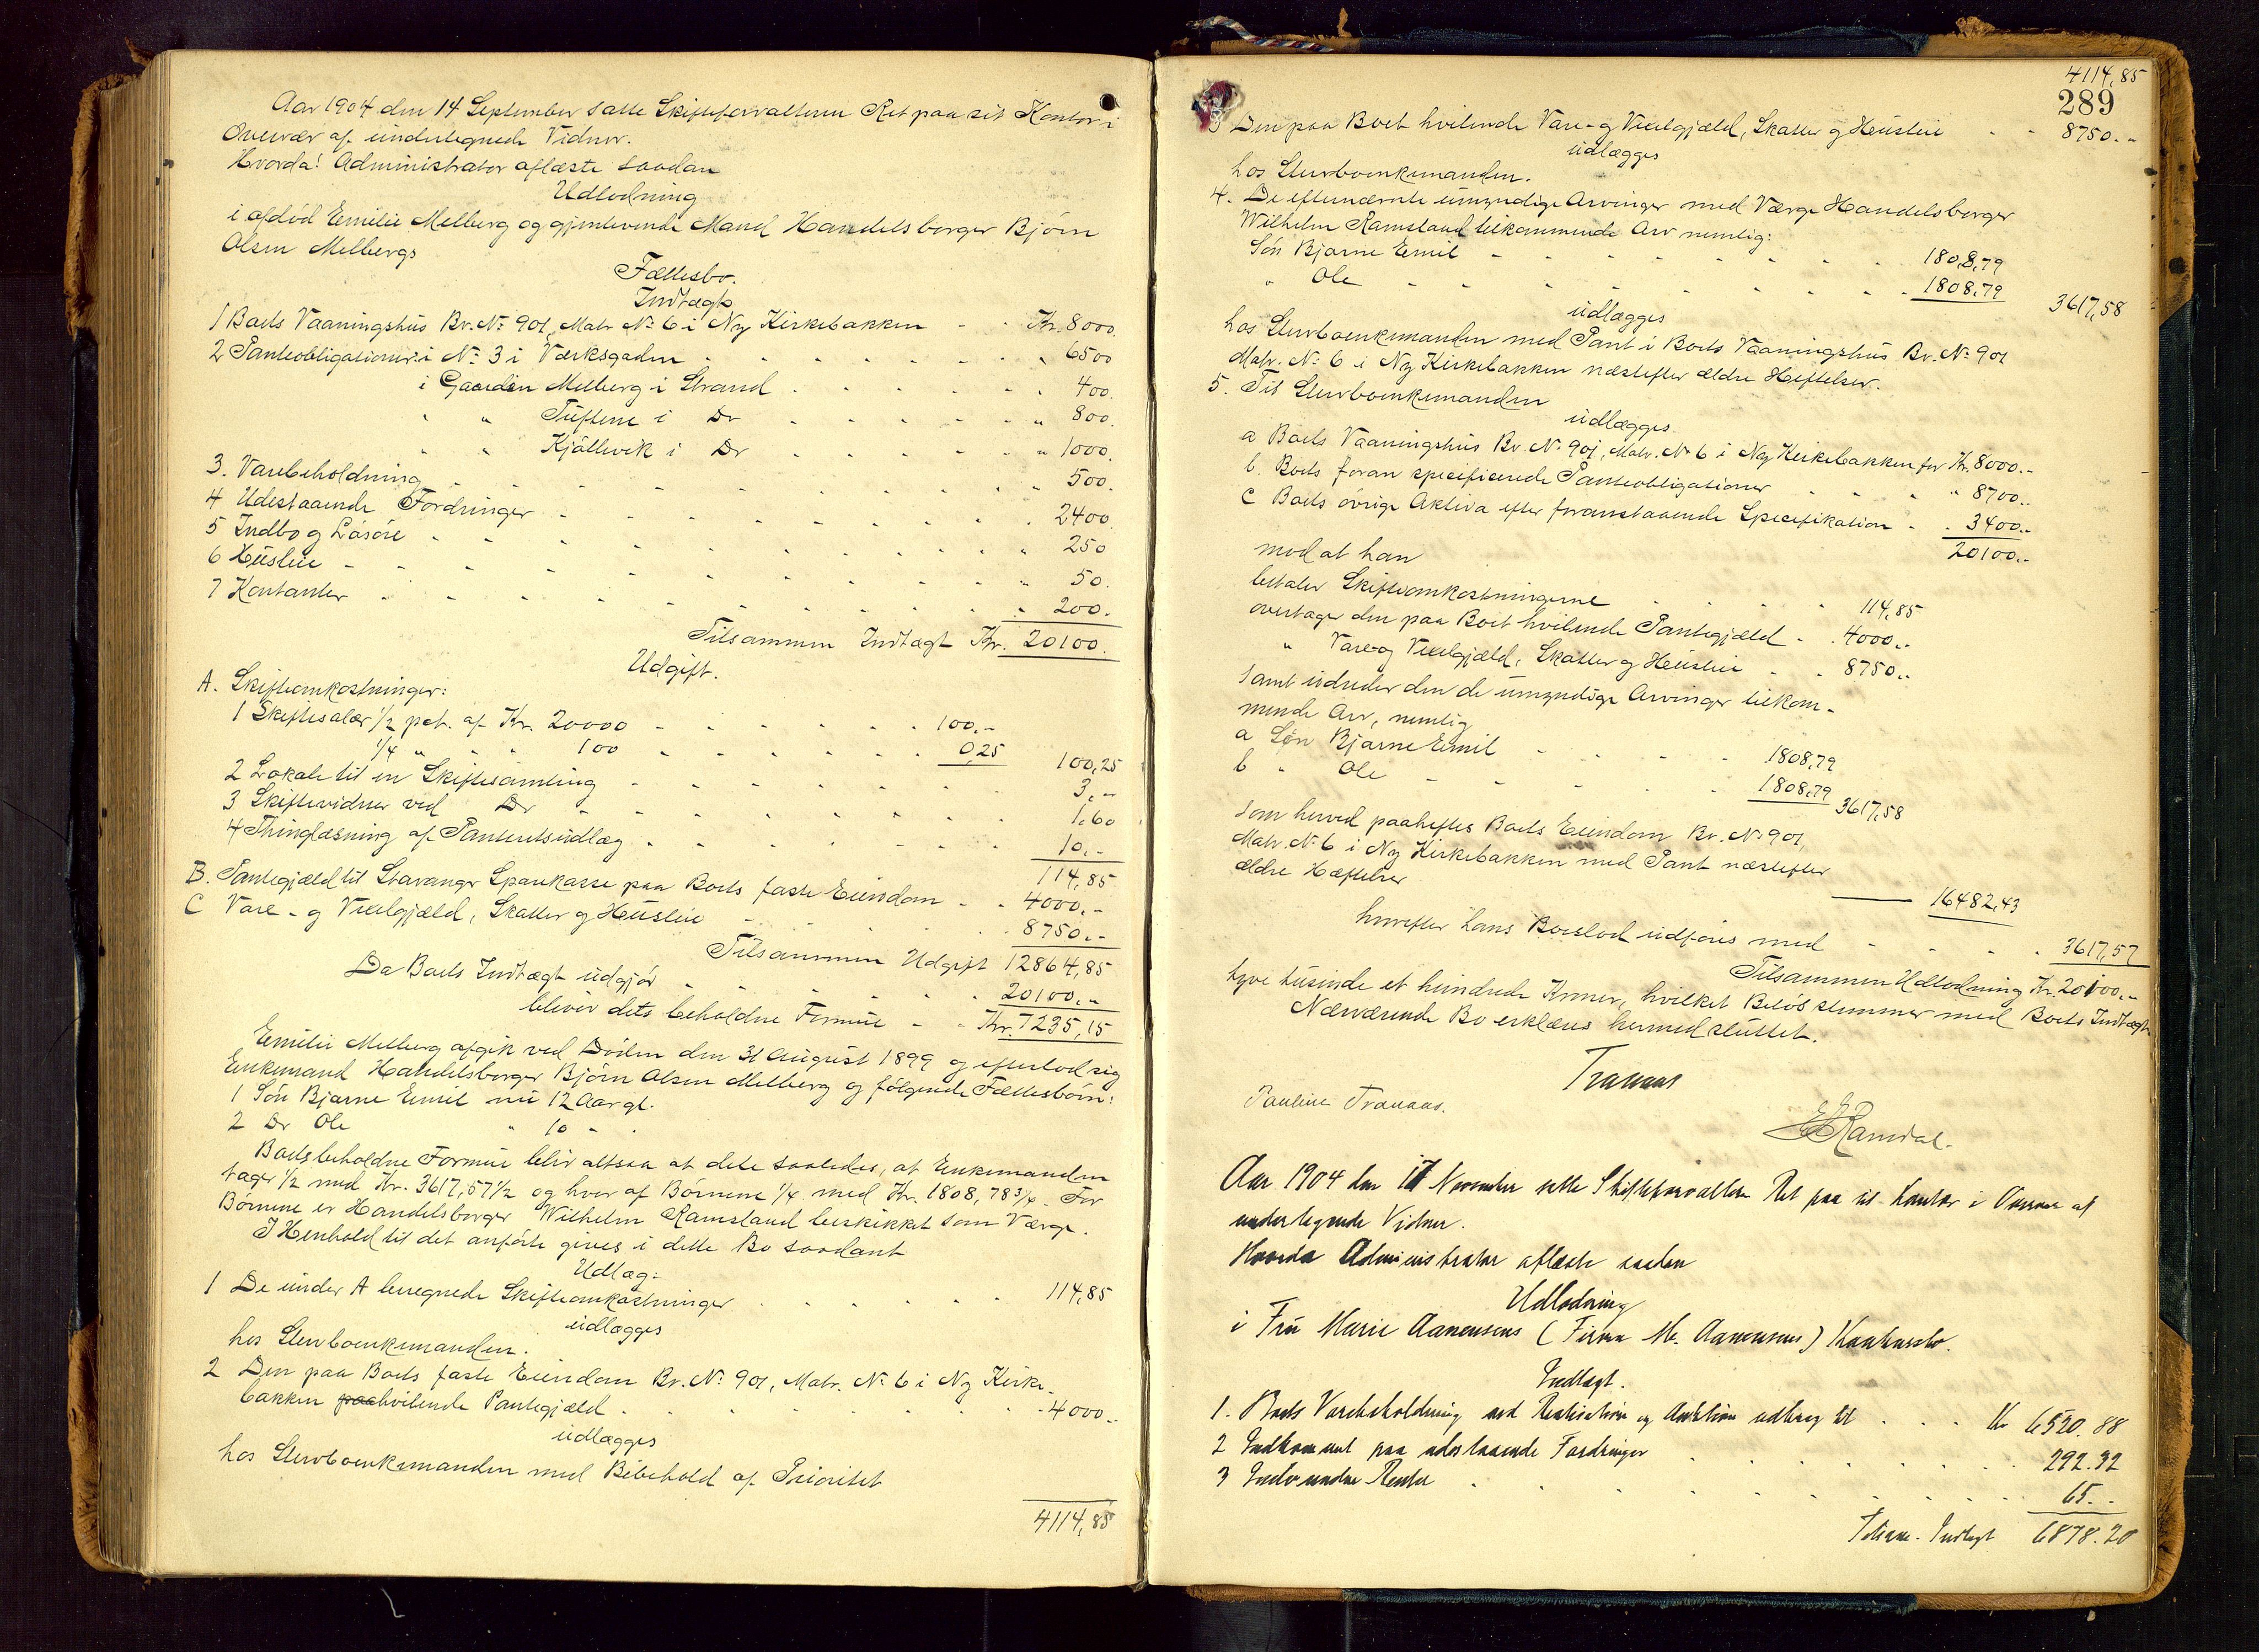 Aar 1904 den 14 September satte Skifteforvalteren Ret paa sit Kontor i
Overvær af undertegnede Vidner.
Hvorda! Administrator aflæste saadan
Udlodning
i afdød Emilie Melberg og gjenlevende Mand Handelsborger Bjørn
Olsen Melbergs
Fællesbo.
Indtægt
1 Boets Vaaningshus Br. No 901, Matr No 6 i Ny Kirkebakken - - Kr. 8000.
2 Panteobligationer: i No 3 i Værksgaden - - - - - - " 6500
i Gaarden Melberg i Strand - - - - - " 400.
" " Tuftene i Do - - - - - " 800.
" " Kjöllevik i Do - - - - - " 1000.
3. Varebeholdning - - - - - - - - " 500.
4 Udestaaende Fordringer - - - - - - - 2400.
5 Indbo og Løsøre - - - - - - - - " 250
6 Husleie - - - - - - - - " 50.
7 Kontanter - - - - - - - - " 200.
Tilsammen Indtægt Kr. 20100.
Udgift.
A. Skifteomkostninger:
1 Skiftesalær 1/2 pct. af Kr. 20000 - - - - - 100.-
1/4 " " " 100 - - - - - 0,25 100,25
2 Lokale til en Skiftesamling - - - - - - 3,--
3 Skiftevidner ved Do - - - - - - 1.60
4 Thinglæsning af Panteretsudlæg - - - - - - 10.-
114,85
B. Pantegjæld til Stavanger Sparekasse paa Boets faste Eiendom - - 4000.-
C Vare- og Vexelgjæld, Skatter og Husleie - - 8750.-
Tilsammen Udgift 12864,85
Da Boets Indtægt udgjør - - - - - - 20100.-
bliver dets beholdne Formue - - Kr. 7235,15
Emilie Melberg afgik ved Døden den 31 August 1899 og efterlod sig
Enkemand Handelsborger Bjørn Olsen Melberg og følgende Fællesbørn:
1 Søn Bjarne Emil nu 12 Aar gl.
2 Do Ole " 10 " .
Boets beholdne Formue bliv altsaa at dele saaledes, at Enkemanden
tager 1/2 med Kr. 3617,57 1/2 og hver af Børnene 1/4 med Kr. 1808,78 3/4. For
Børnene er Handelsborger Wilhelm Ramsland beskikket som Værge.
I Henhold til det anførte gives i dette Bo saadant
Udlæg:
1 De under A beregnede Skifteomkostninger - - - - - 114,85
udlægges
hos Stervboenkemanden.
2 Den paa Boets faste Eiendom Br. No 901, Matr. No 6 i Ny Kirke-
bakken paahvilende Pantegjæld - - - - - - 4000.-
udlægges
hos Stervboenkemanden med Bibehold af Prioritet
4114,85
4114,85
289
3 Den paa Boet hvilende Vare- og Vexelgjæld, Skatter og Husleie - - 8750.-
udlægges
hos Stervboenkemanden.
4. De efternævnte umyndige Arvinger med Værge Handelsborger
Wilhelm Ramsland tilkommende Arv nemlig:
Søn Bjarne Emil - - - - - - - 1808,79
" Ole - - - - - - - 1808,79 3617,58
udlægges
hos Stervboenkemanden med Pant i Boets Vaaningshus Br. No 901
Matr. No 6 i Ny Kirkebakken næstefter ældre Heftelser.
5. Til Stervboenkemanden
udlægges
a Boets Vaaningshus Br. No 901, Matr. No 6 i Ny Kirkebakken for Kr. 8000.-
b. Boets foran specificerede Panteobligationer - - - " 8700.-
c Boets øvrige Aktiva efter foranstaaende Specifikation - - 3400.-
20100.-
mod at han
betaler Skifteomkostningerne - - - - 114,85
overtager den paa Boet hvilende Pantegjæld - - 4000.-
" Vare- og Vexelgjæld, Skatter og Husleie - - 8750.-
samt udreder den de umyndige Arvinger tilkom-
mende Arv, nemlig
a Søn Bjarne Emil - - - - 1808,79
b " Ole - - - - 1808,79 3617,58
som herved paaheftes Boets Eiendom Br. No 901,
Matr. No 6 i Ny Kirkebakken med Pant næstefter
ældre Hæftelser
— 16482,43
hvorefter hans Boeslod udføres med - - - - 3617,57
Tilsammen Udlodning Kr. 20100.-
tyve tusinde et hundrede Kroner, hvilket Beløb stemmer med Boets Indtægt.
Nærværende Bo erklæres hermed sluttet.
Tranaas
Pauline Tranaas.
Ramdal.
Aar 1904 den 17 November satte Skifteforvalteren Ret paa sit Kontor i Overvær af
undertegnede Vidner.
Hvorda Administrator aflæste saadan
Udlodning
i Fru Marie Aanensens (Firma M. Aanensens) Konkursbo.
Indtægt.
1. Boets Varebeholdning ved Realisation og Auktion udbragt til - - - Kr 6520.88
2 Indkommet paa udestaaende Fordringer - - - - - 292.32
3 Indvundne Renter - - - - - - 65.-
Tilsam. Indtægt 6878.20